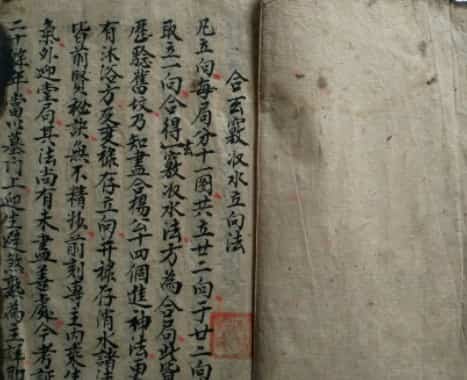 合玄竅收水立向法
凡立向每局分十一圖共立廿二向于廿二向
取立一向合得一玄竅收水法方為合局此皆
歷驗舊坟乃知盡合楊公十四個進神法
有沐浴方反來祿存立向并祿存消水諸法
皆前賢秘訣無不精妙前刻專主內乘生
氣外迎堂局其法尚有未盡善處今考証
二十餘年當以墓門上迎生